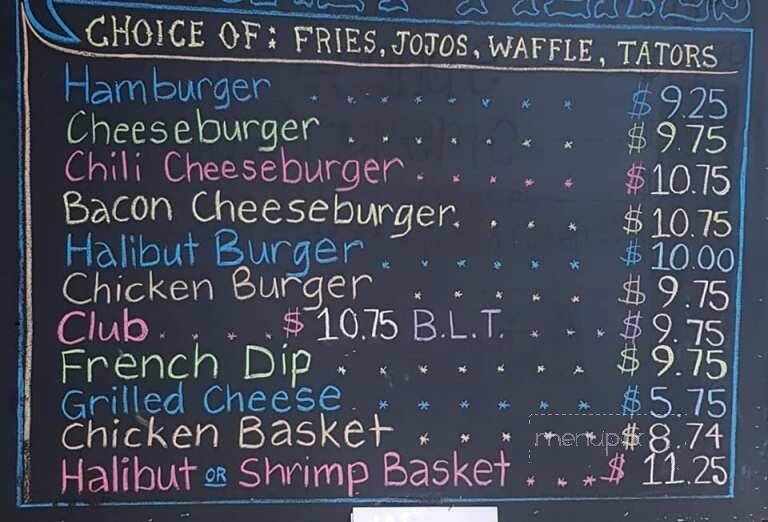 CHOICE OF: FRIES, JOJOS, WAFFLE, TATORS
Hamburger . . . . . . . $ 9.25
Cheeseburger . . . . . . $ 9.75
Chili Cheeseburger . . . . . $ 10.75
Bacon Cheeseburger . . . . $ 10.75
Halibut Burger . . . . . . $ 10.00
Chicken Burger . . . . . $ 9.75
Club . . . . $ 10.75 B.L.T. . . . $ 9.75
French Dip . . . . . . . $ 9.75
Grilled Cheese . . . . . . $ 5.75
Chicken Basket . . . . . $ 8.74
Halibut OR Shrimp Basket . . . $ 11.25
menupix